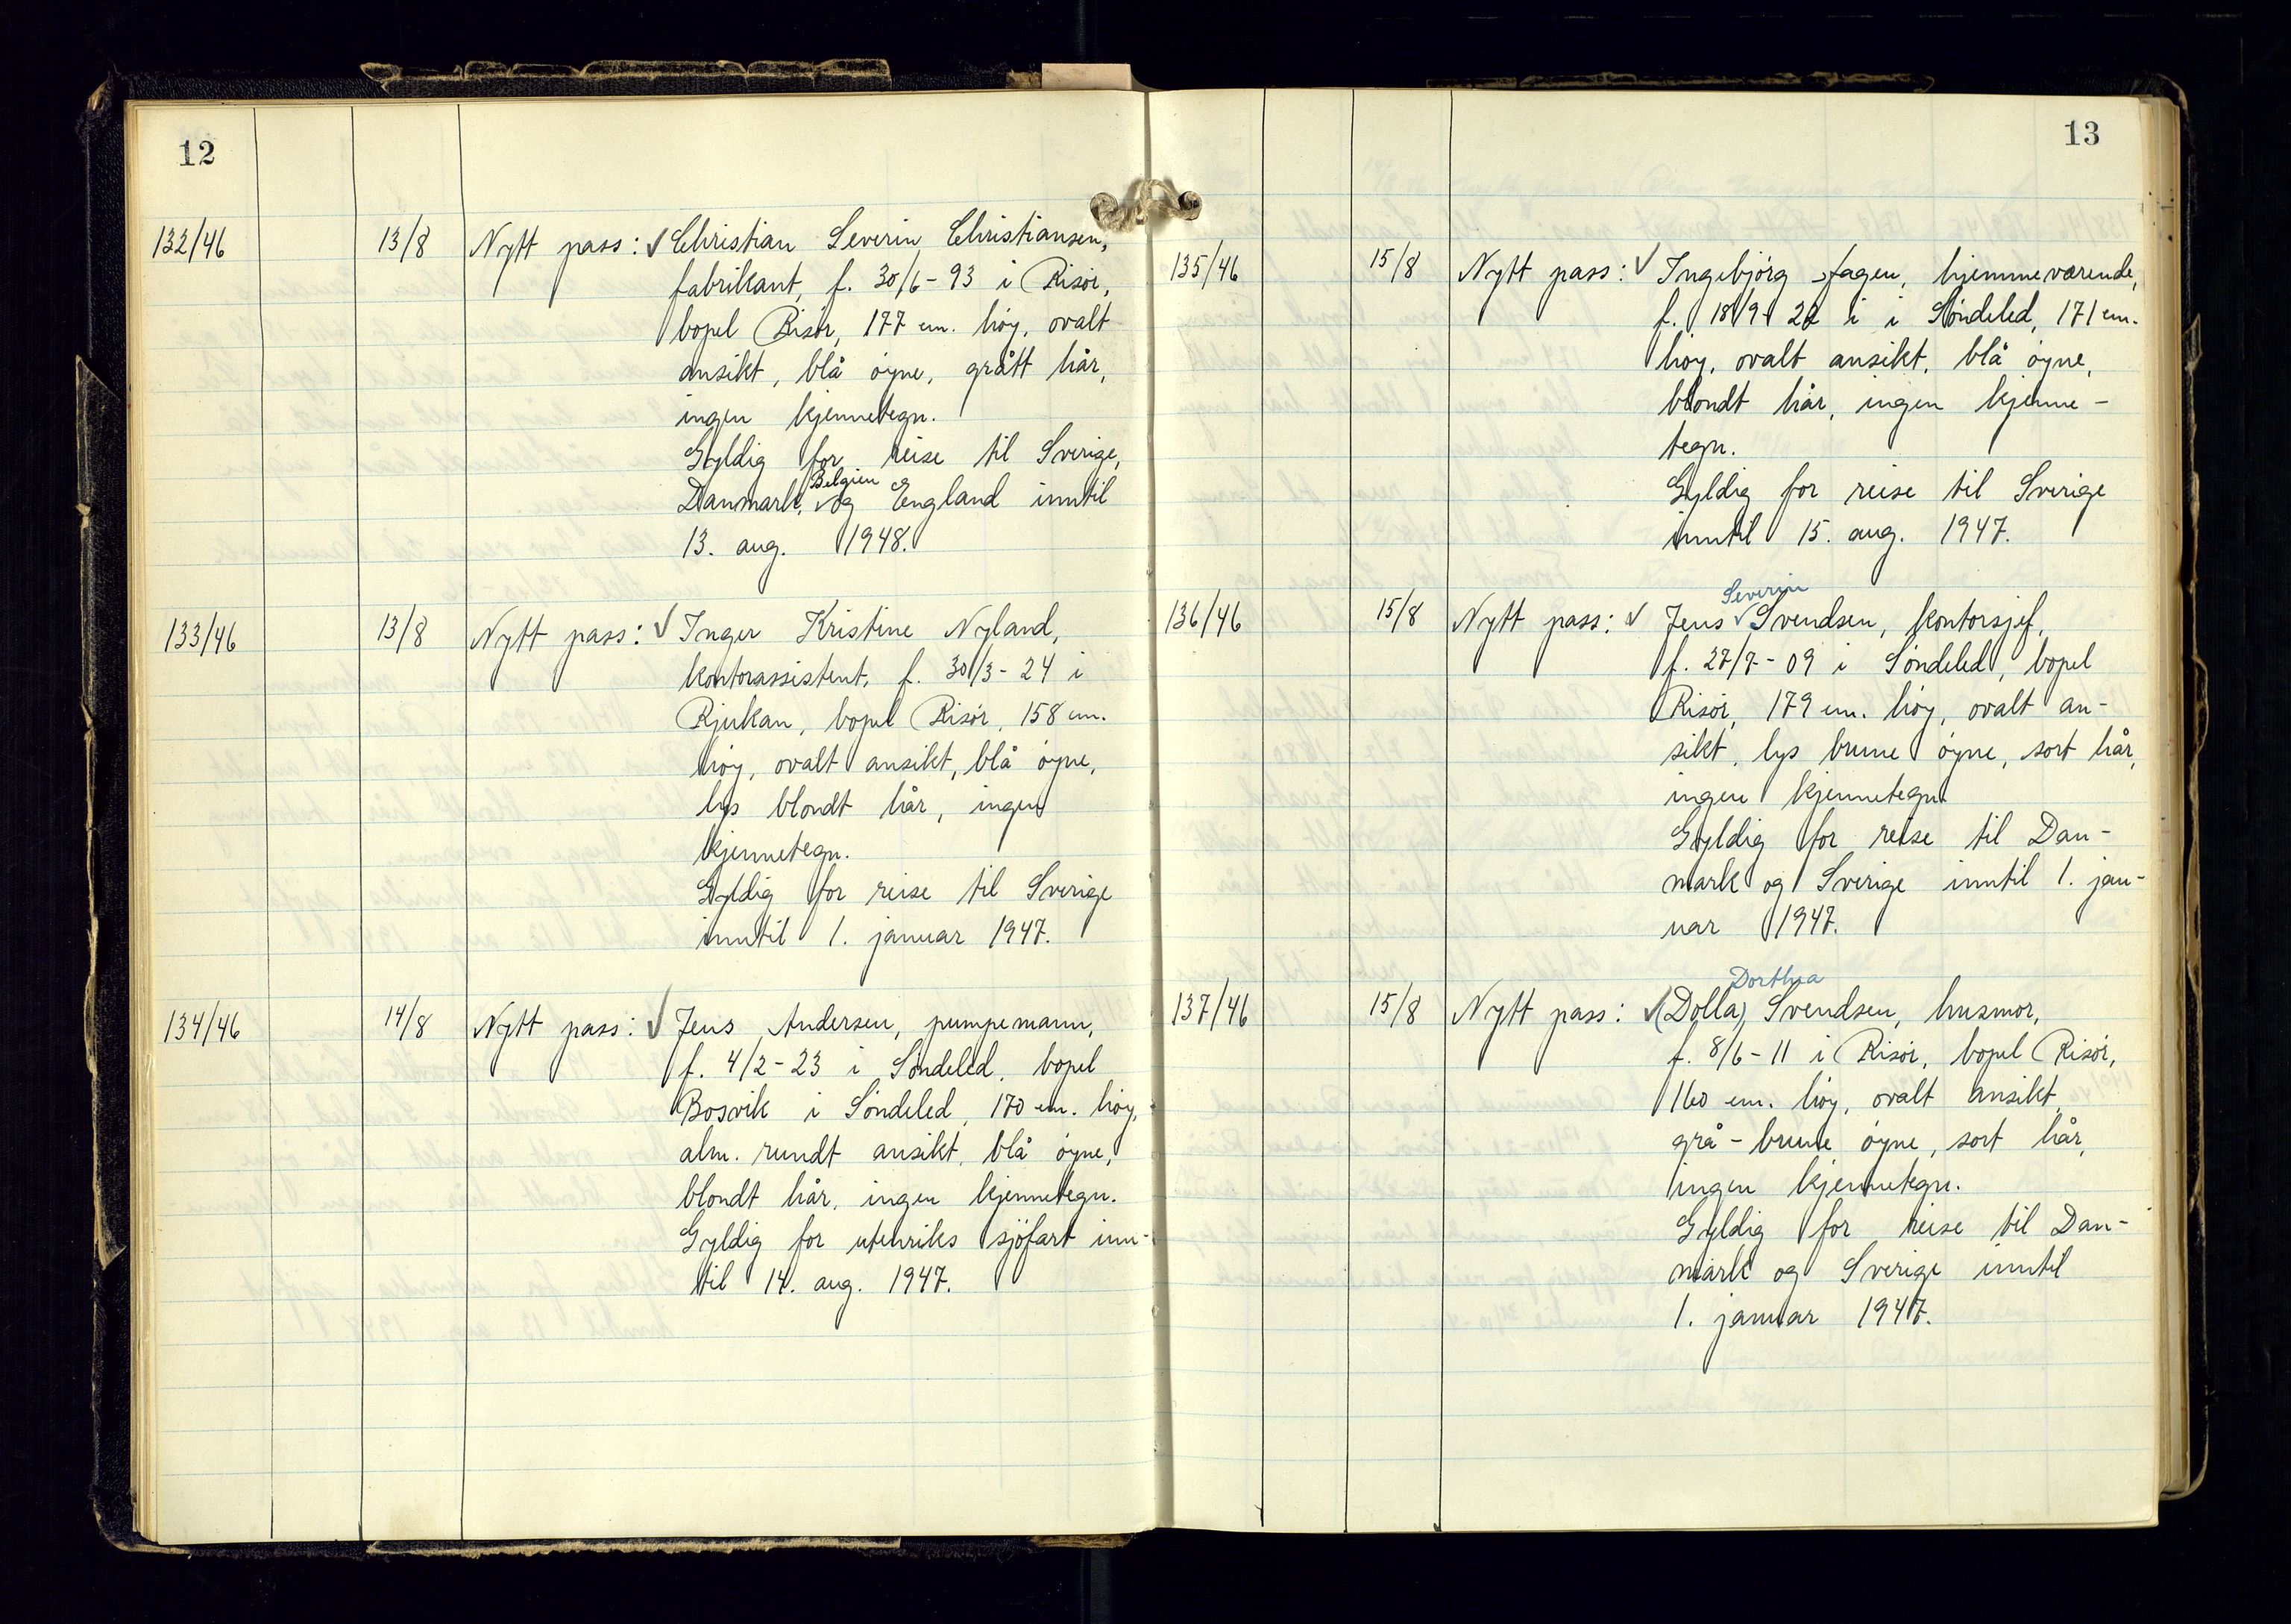 12
132/46 13/8 Nytt pass: ✓ Christian Severin Christiansen,
fabrikant, f. 30/6-93 i Risör,
bopel Risör, 177 cm. höy, ovalt
ansikt, blå öyne, grått hår,
ingen kjennetegn.
Gyldig for reise til Sverige,
Belgien
Danmark, og England inntil
13. aug. 1948.
133/46 13/8 Nytt pass: ✓ Inger Kristine Nyland,
kontorassistent, f. 30/3-24 i
Rjukan, bopel Risör, 158 cm.
höy, ovalt ansikt, blå öyne,
lys blondt hår, ingen
kjennetegn.
Gyldig for reise til Sverige
inntil 1. januar 1947.
134/46 14/8 Nytt pass: ✓ Jens Andersen, pumpemann,
f. 4/2-23 i Söndeled, bopel
Bosvik i Söndeled, 170 cm. höy,
alm. rundt ansikt, blå öyne,
blondt hår, ingen kjennetegn.
Gyldig for utenriks sjöfart inn-
til 14. aug. 1947.
13
135/46 15/8 Nytt pass: ✓ Ingebjörg Fagen, hjemmeværende,
f. 18/9-22 i i Söndeled, 171 cm.
höy, ovalt ansikt, blå öyne,
blondt hår, ingen kjenne-
tegn.
Gyldig for reise til Sverige
inntil 15. aug. 1947.
Severin
136/46 15/8 Nytt pass: ✓ Jens ✓ Svendsen, kontorsjef,
f. 27/7-09 i Söndeled, bopel
Risör, 179 cm. höy, ovalt an-
sikt, lys brune öyne, sort hår,
ingen kjennetegn.
Gyldig for reise til Dan-
mark og Sverige inntil 1. jan-
uar 1947.
Dorthea
137/46 15/8 Nytt pass: ✓ (Dolla) Svendsen, husmor,
f. 8/6-11 i Risör, bopel Risör,
160 cm. höy, ovalt ansikt,
grå-brune öyne, sort hår,
ingen kjennetegn.
Gyldig for reise til Dan-
mark og Sverige inntil
1. januar 1947.